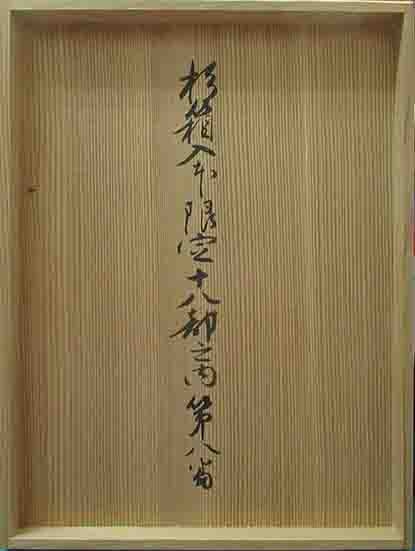 杉箱入本限定十八部之内第八番